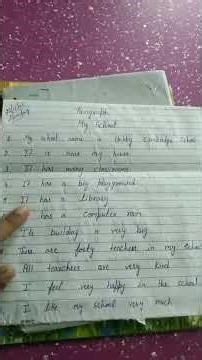 Paragraph
My School
1. My school name is Cambridge School
2. It is near my house
3. It has many classrooms
4. It has a big playground
5. It has a library
has a computer room
Its building is very big
There are forty teachers in my school
All teachers are very kind
I feel very happy in the school
I like my school very much